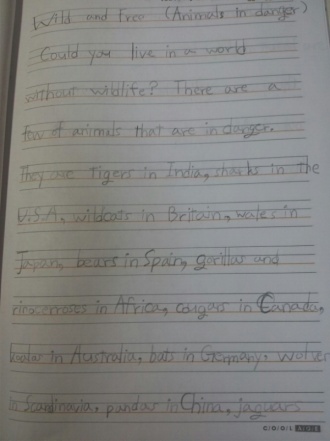 Wild and Free (Animals in danger)
Could you live in a world
without wildlife? There are a
few of animals that are in danger.
They are Tigers in India, sharks in the
U.S.A, wildcats in Britain, wales in
Japan, bears in Spain, gorillas and
rinocerroses in Africa, cougars in Canada,
koalas in Australia, bats in Germany, wolver
in Scandinavia, pandas in China, jaguars